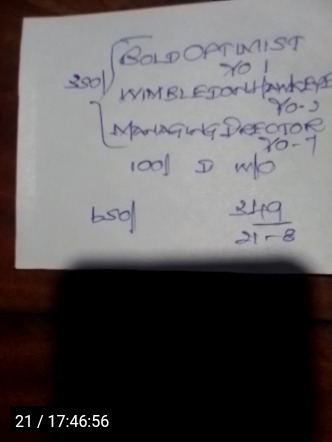 BOLD OPTIMIST
YO 1
350/
WIMBLEDON HAWKEYE
YO-2
MANAGING DIRECTOR
YO-7
100/ D W/O
650/
21-8
21 / 17:46:56